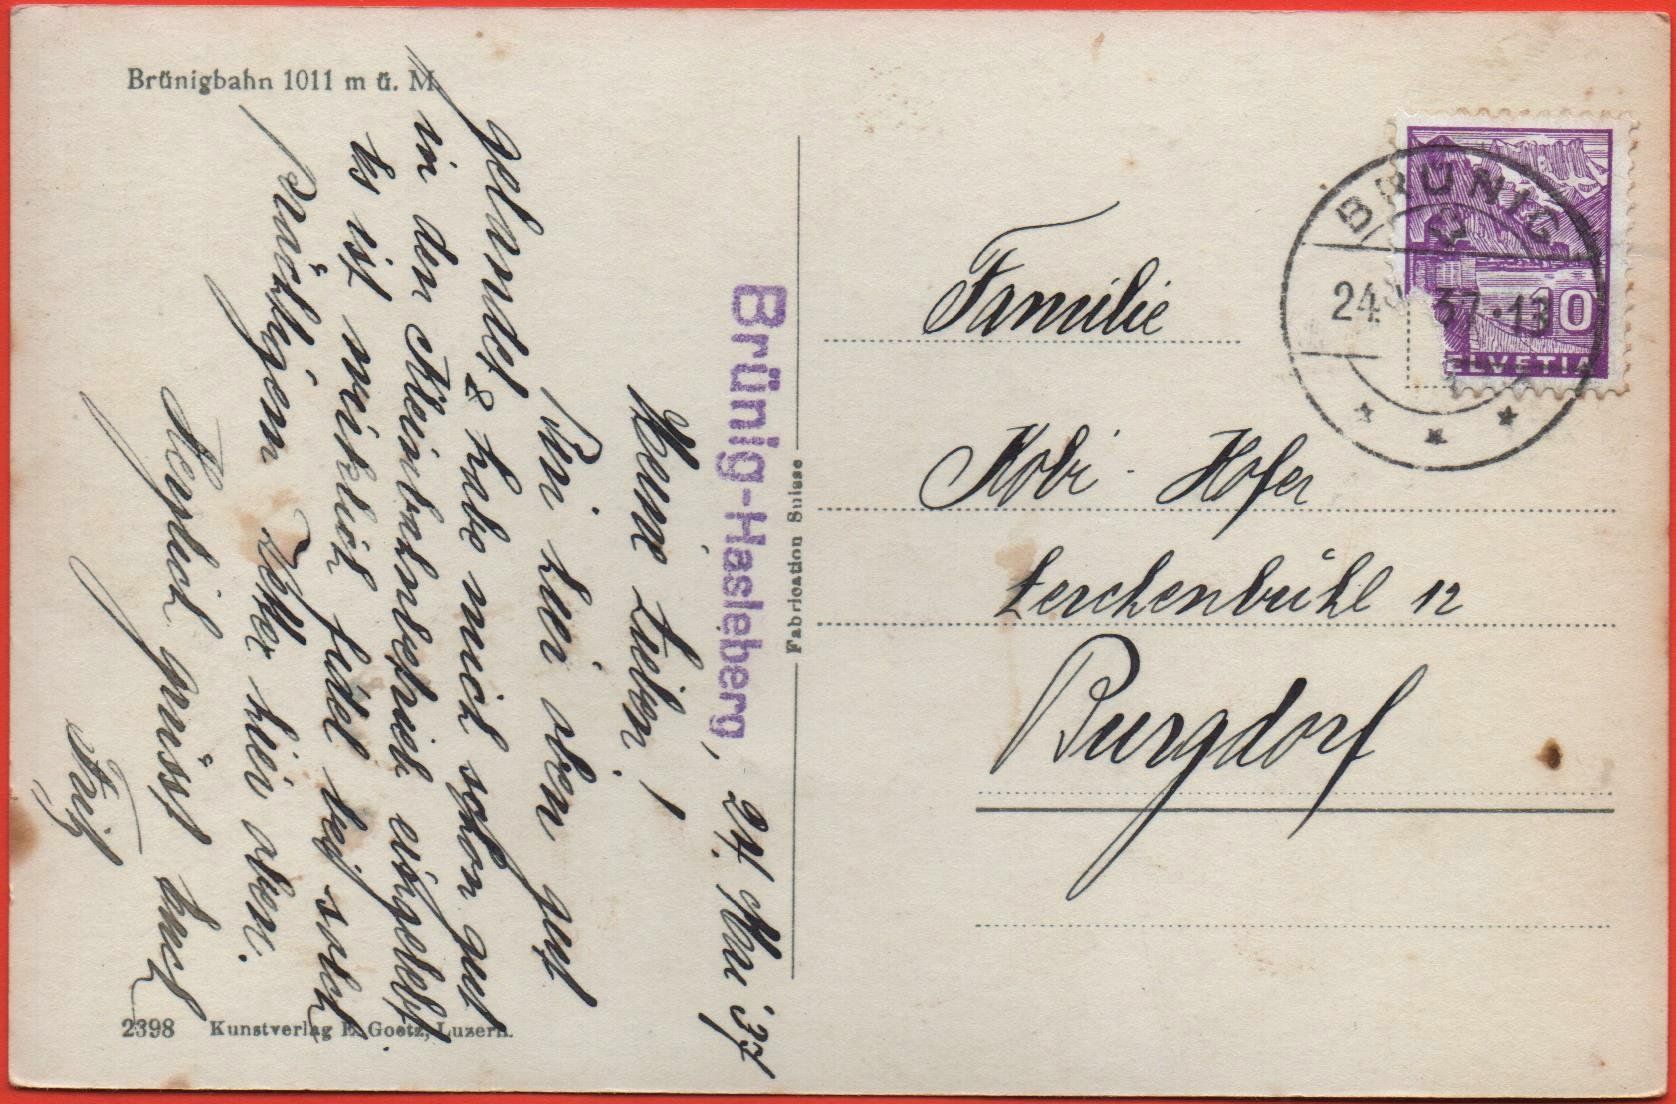 Brünigbahn 1011 m ü. M.
Brünig-Hasleberg, 24. Mai 37
Meine Lieben!
Bin hier oben gut
gelandet & habe mich schon gut
in den Kleinbahnbetrieb eingelebt
Es ist wirklich fidel bei solch
prächtigem Wetter hier oben.
Herzlich grüsst Euch
Fritz
2398 Kunstverlag E. Goetz, Luzern.
Fabrication Suisse
BRÜNIG
24. 37.-13
10
HELVETIA
Familie
Kobi - Hofer
Lerchenbühl 12
Burgdorf